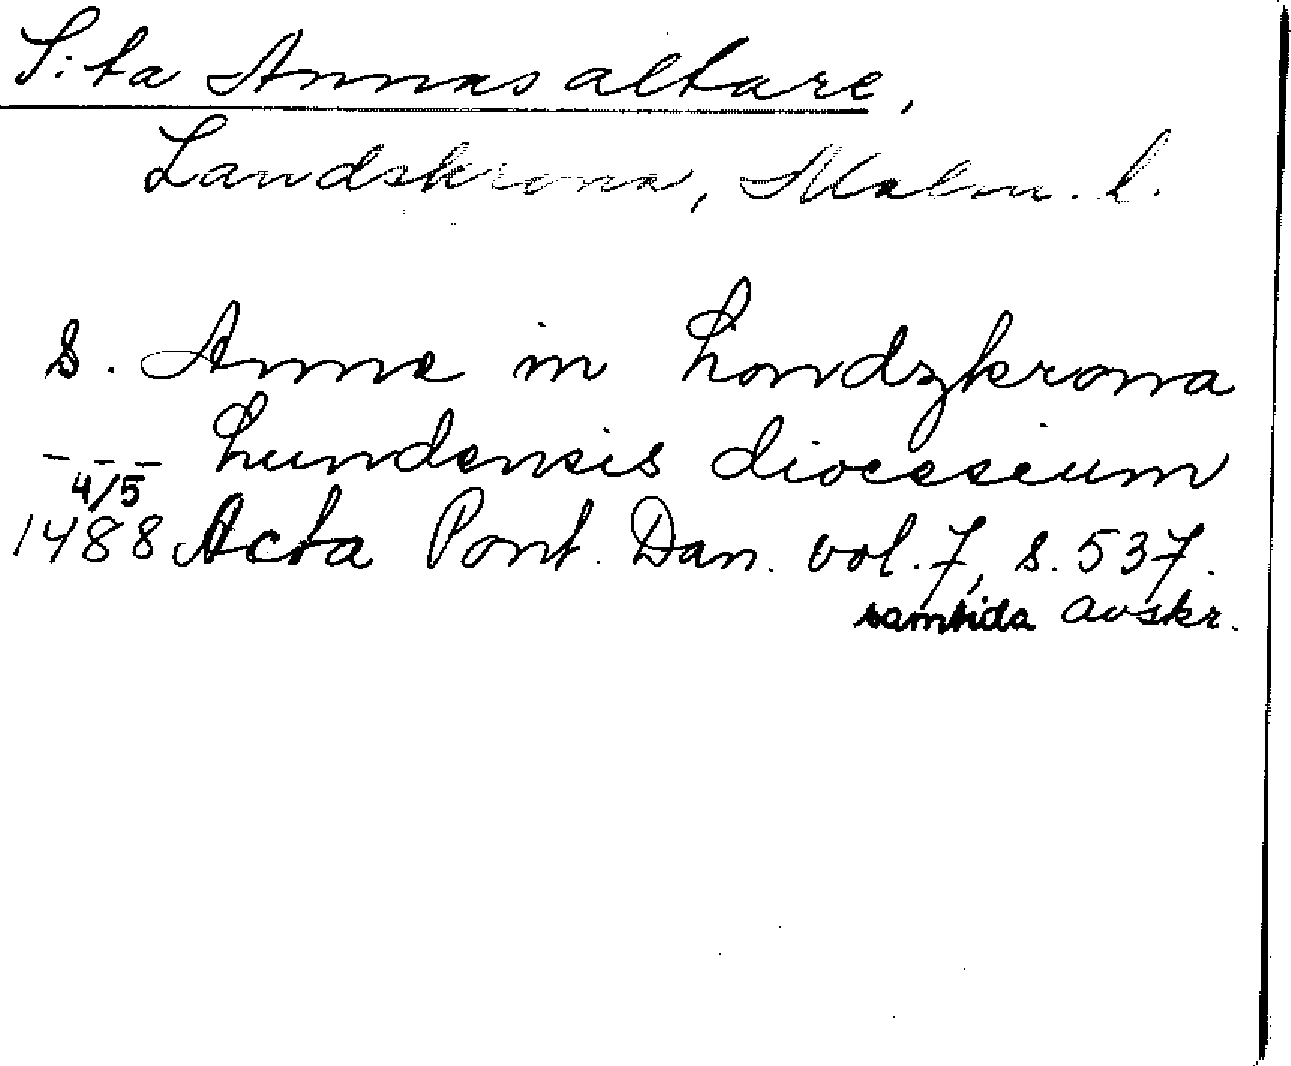 S:ta Annas altare,
Landskrona, Malm. l.
s. Anne in Londzkrona
--- Lundensis diocesium
4/5
1488 Acta Pont. Dan. vol. 7, s. 537.
samtida avskr.